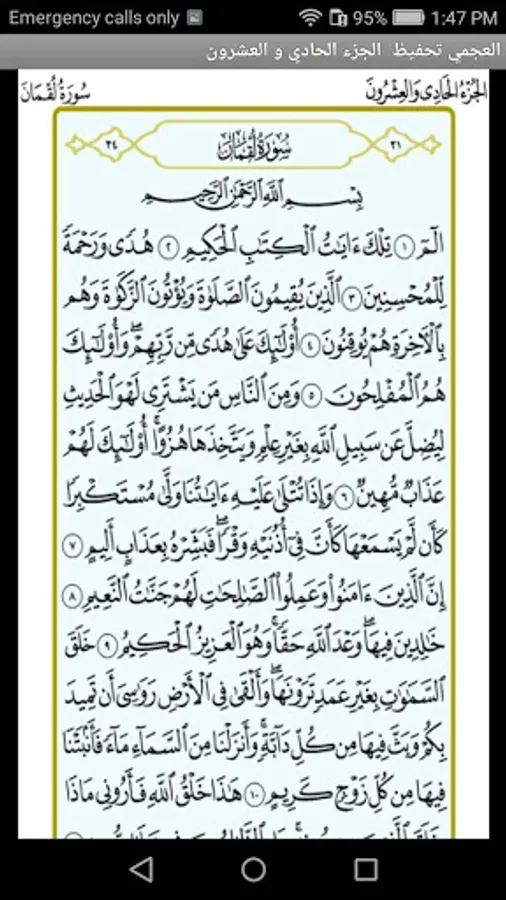 Emergency calls only 95% 1:47 PM
العجمي تحفيظ الجزء الحادي و العشرون
الجُزْءُ الحَادِى وَالعِشْرُونَ سُورَةُ لُقْمَانَ
٢١ سُورَةُ لُقْمَانَ ٢٤
بِسْمِ اللَّهِ الرَّحْمَٰنِ الرَّحِيمِ
الٓمٓ ١ تِلْكَ ءَايَٰتُ الْكِتَٰبِ الْحَكِيمِ ٢ هُدًى وَرَحْمَةً
لِّلْمُحْسِنِينَ ٣ الَّذِينَ يُقِيمُونَ الصَّلَوٰةَ وَيُؤْتُونَ الزَّكَوٰةَ وَهُم
بِالْأٓخِرَةِ هُمْ يُوقِنُونَ ٤ أُولَٰٓئِكَ عَلَىٰ هُدًى مِّن رَّبِّهِمْ ۖ وَأُولَٰٓئِكَ
هُمُ الْمُفْلِحُونَ ٥ وَمِنَ النَّاسِ مَن يَشْتَرِى لَهْوَ الْحَدِيثِ
لِيُضِلَّ عَن سَبِيلِ اللَّهِ بِغَيْرِ عِلْمٍ وَيَتَّخِذَهَا هُزُوًا ۚ أُولَٰٓئِكَ لَهُمْ
عَذَابٌ مُّهِينٌ ٦ وَإِذَا تُتْلَىٰ عَلَيْهِ ءَايَٰتُنَا وَلَّىٰ مُسْتَكْبِرًا
كَأَن لَّمْ يَسْمَعْهَا كَأَنَّ فِىٓ أُذُنَيْهِ وَقْرًا ۖ فَبَشِّرْهُ بِعَذَابٍ أَلِيمٍ ٧
إِنَّ الَّذِينَ ءَامَنُوا وَعَمِلُوا الصَّٰلِحَٰتِ لَهُمْ جَنَّٰتُ النَّعِيمِ ٨
خَٰلِدِينَ فِيهَا ۖ وَعْدَ اللَّهِ حَقًّا ۚ وَهُوَ الْعَزِيزُ الْحَكِيمُ ٩ خَلَقَ
السَّمَٰوَٰتِ بِغَيْرِ عَمَدٍ تَرَوْنَهَا ۖ وَأَلْقَىٰ فِى الْأَرْضِ رَوَٰسِىَ أَن تَمِيدَ
بِكُمْ وَبَثَّ فِيهَا مِن كُلِّ دَآبَّةٍ ۚ وَأَنزَلْنَا مِنَ السَّمَآءِ مَآءً فَأَنۢبَتْنَا
فِيهَا مِن كُلِّ زَوْجٍ كَرِيمٍ ١٠ هَٰذَا خَلْقُ اللَّهِ فَأَرُونِى مَاذَا